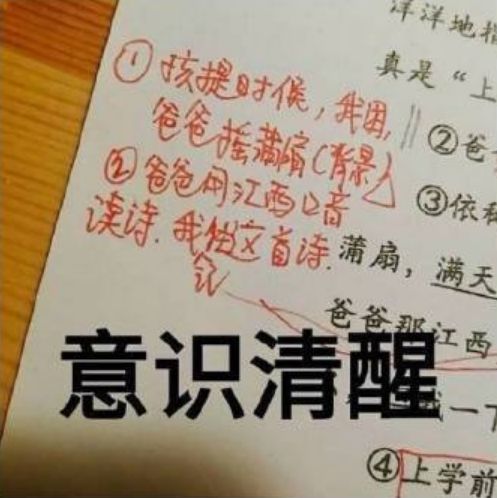 洋洋地
真是“上
①孩提时候，我困，
爸爸摇蒲扇（背景）
②爸
②爸爸用江西口音
③依稀
读诗．我 这首诗．
记
蒲扇，满天
爸爸那江西
意识清醒
我一下
④上学前